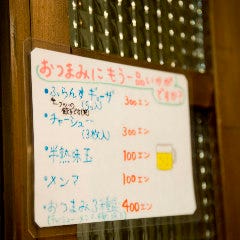 おつまみにもう一品いかが
ですか?
・ふらんすギョーザ
(5コ入) 300エン
・チャーシュー
(3枚入) 300エン
・半熟味玉 100エン
・メンマ 100エン
・おつまみ3種盛 400エン